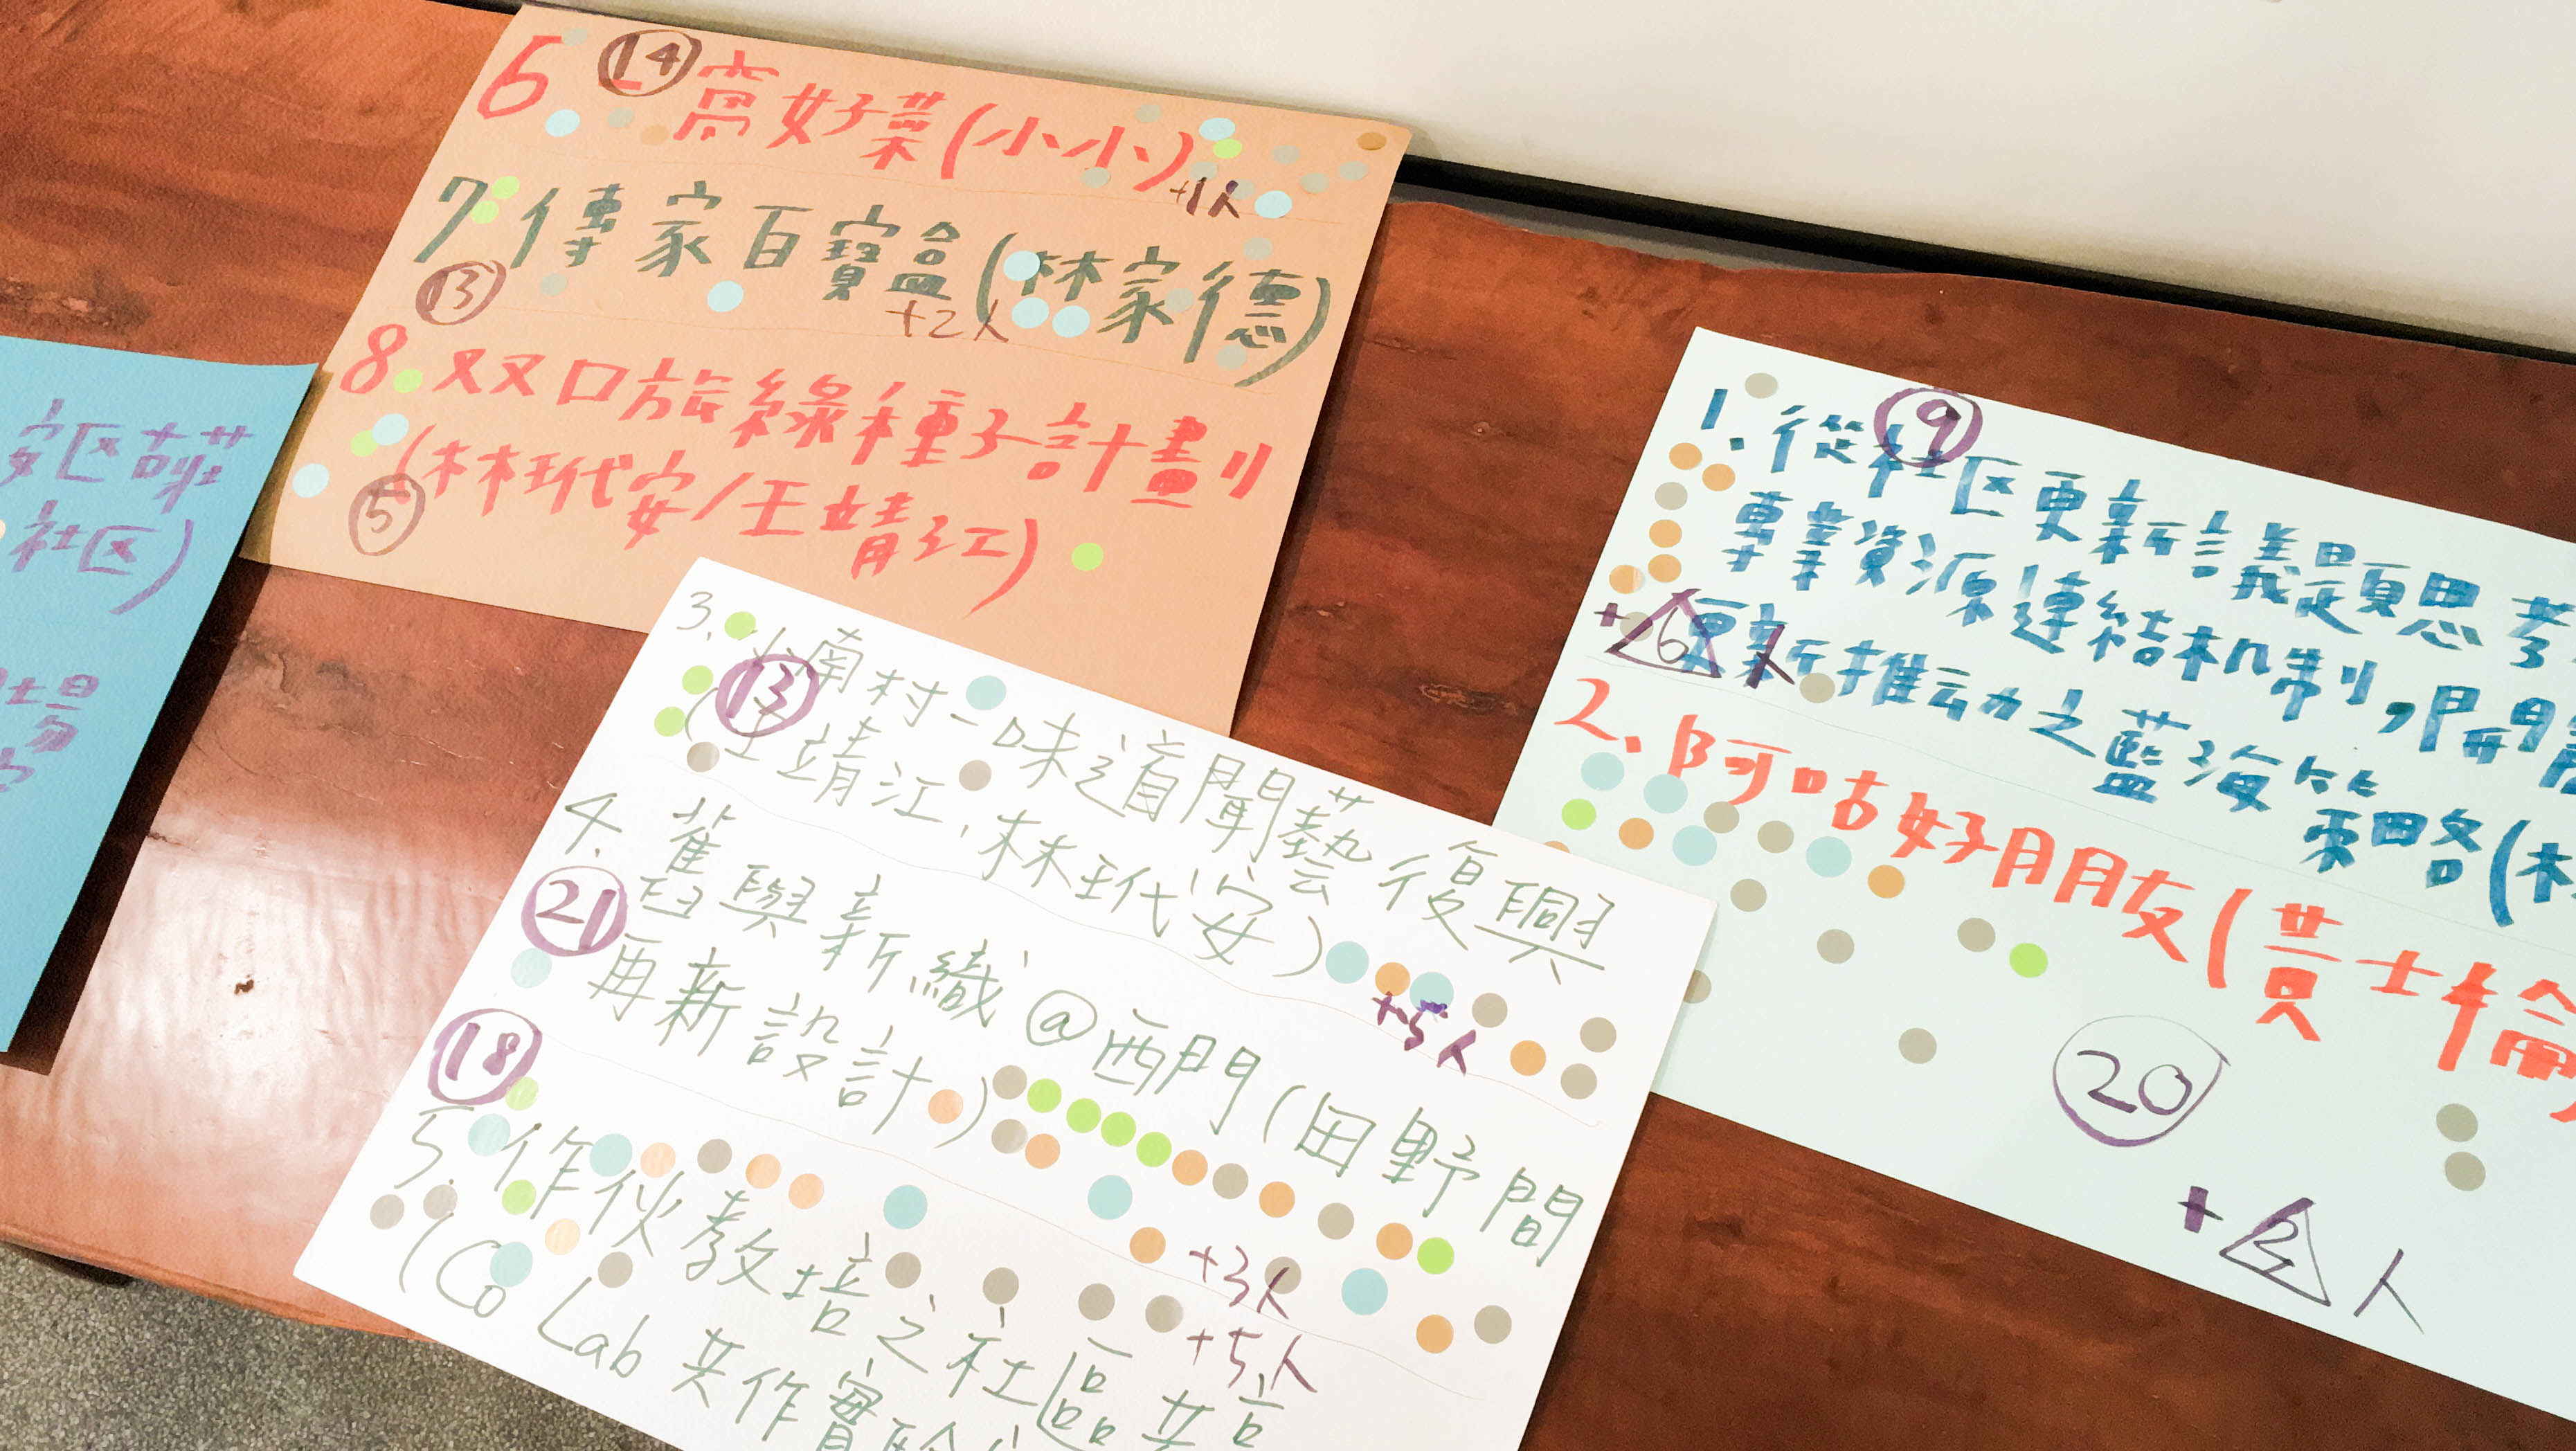 6 ⑭ 窩好菜(小小)
+1人
7. 傳家百寶盒(林家德)
⑬ +2人
8. 双口旅綠種子計劃
(林玳安/王靖江)
⑤
社区)
3. 南村一味道聞藝復興
⑬
(王靖江、林玳安)
+5人
4. 舊與新織@西門(田野間
㉑
再新設計)
+3人
⑱
5. 作伙教培之社區共
+5人
(Co Lab 共作實驗
⑨
1. 從社区更新議題思考
專業資源連結机制,開
+6人
更新推动之藍海策略(林
2. 阿咕好朋友(黃士倫)
⑳
+2人